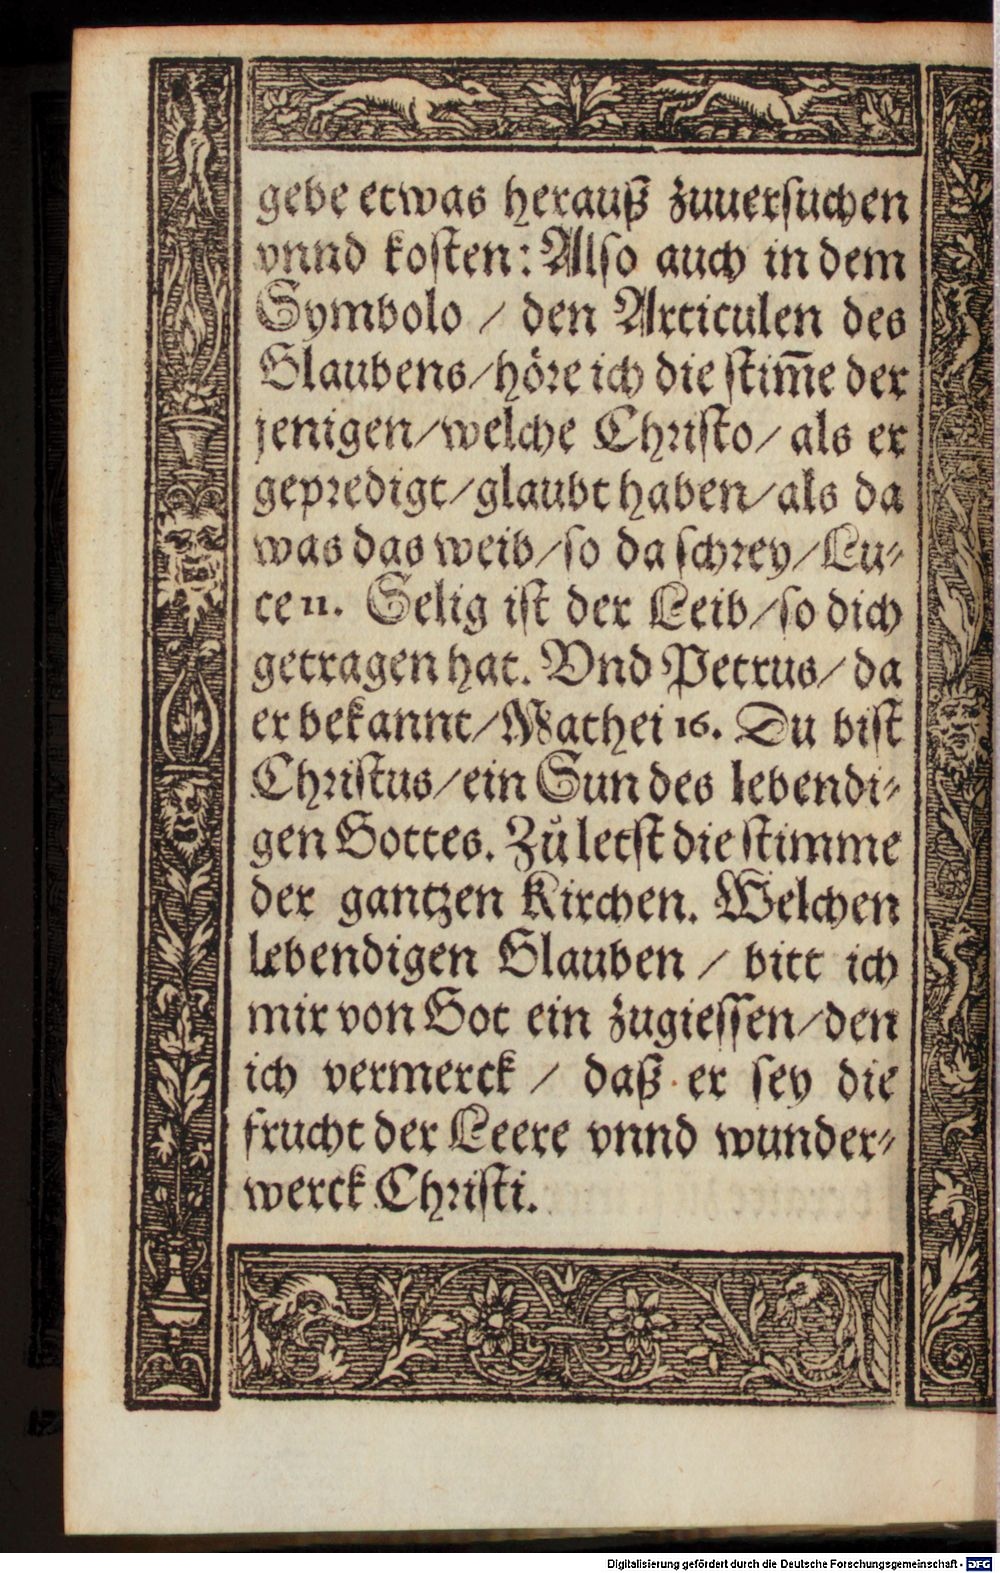 gebe etwas herauß zuuersuchen
vnnd kosten: Also auch in dem
Symbolo / den Articulen des
Glaubens / höre ich die stim̅e der
jenigen / welche Christo / als er
gepredigt / glaubt haben / als da
was das weib / so da schrey / Lu-
ce 11. Selig ist der Leib / so dich
getragen hat. Vnd Petrus / da
er bekannt / Mathei 16. Du bist
Christus / ein Sun des lebendi-
gen Gottes. Zů letst die stimme
der gantzen Kirchen. Welchen
lebendigen Glauben / bitt ich
mir von Got ein zugiessen / den
ich vermerck / daß er sey die
frucht der Leere vnnd wunder-
werck Christi.
Digitalisierung gefördert durch die Deutsche Forschungsgemeinschaft - DFG